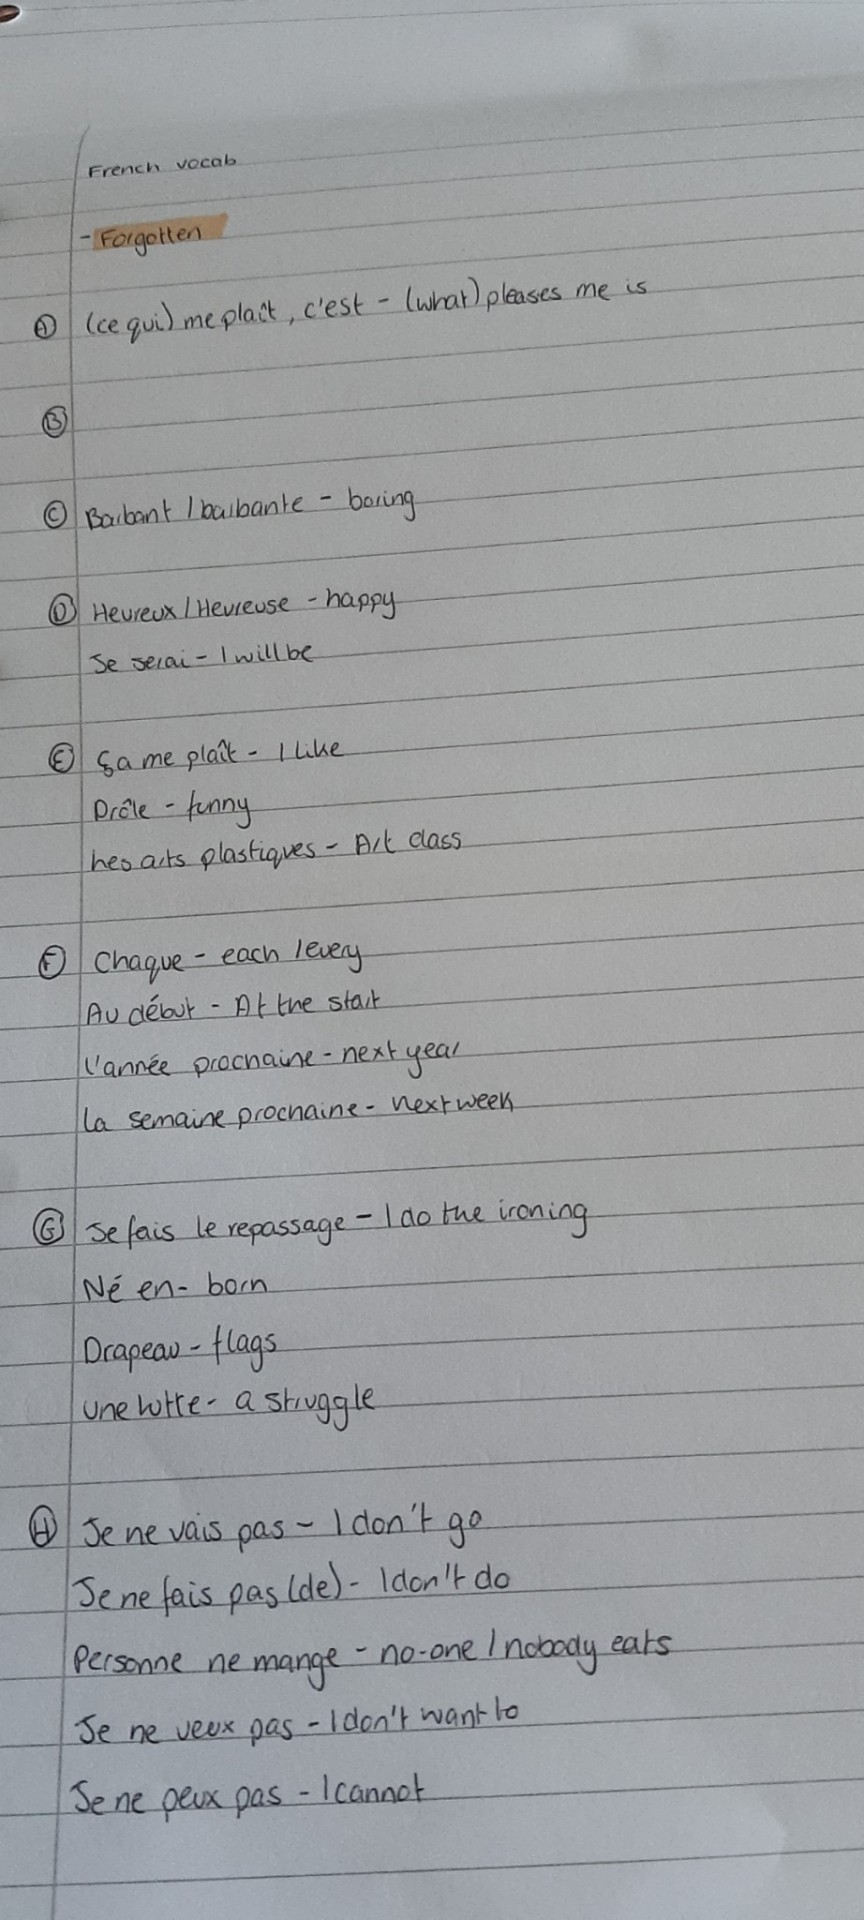 French vocab
- Forgotten
Ⓐ (ce qui) me plaît, c'est - (what) pleases me is
Ⓑ
Ⓒ Barbant / barbante - boring
Ⓓ Heureux / Heureuse - happy
Je serai - I will be
Ⓔ Ça me plaît - I like
Drôle - funny
Les arts plastiques - Art class
Ⓕ Chaque - each / every
Au début - At the start
L'année prochaine - next year
La semaine prochaine - next week
Ⓖ Je fais le repassage - I do the ironing
Né en - born
Drapeau - flags
Une lutte - a struggle
Ⓗ Je ne vais pas - I don't go
Je ne fais pas (de) - I don't do
Personne ne mange - no-one / nobody eats
Je ne veux pas - I don't want to
Je ne peux pas - I cannot